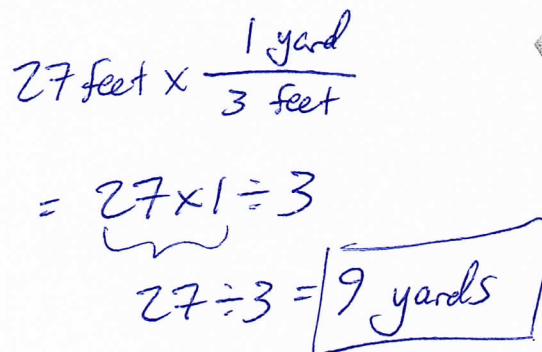 27 feet × 1 yard / 3 feet
= 27×1÷3
27÷3 = 9 yards